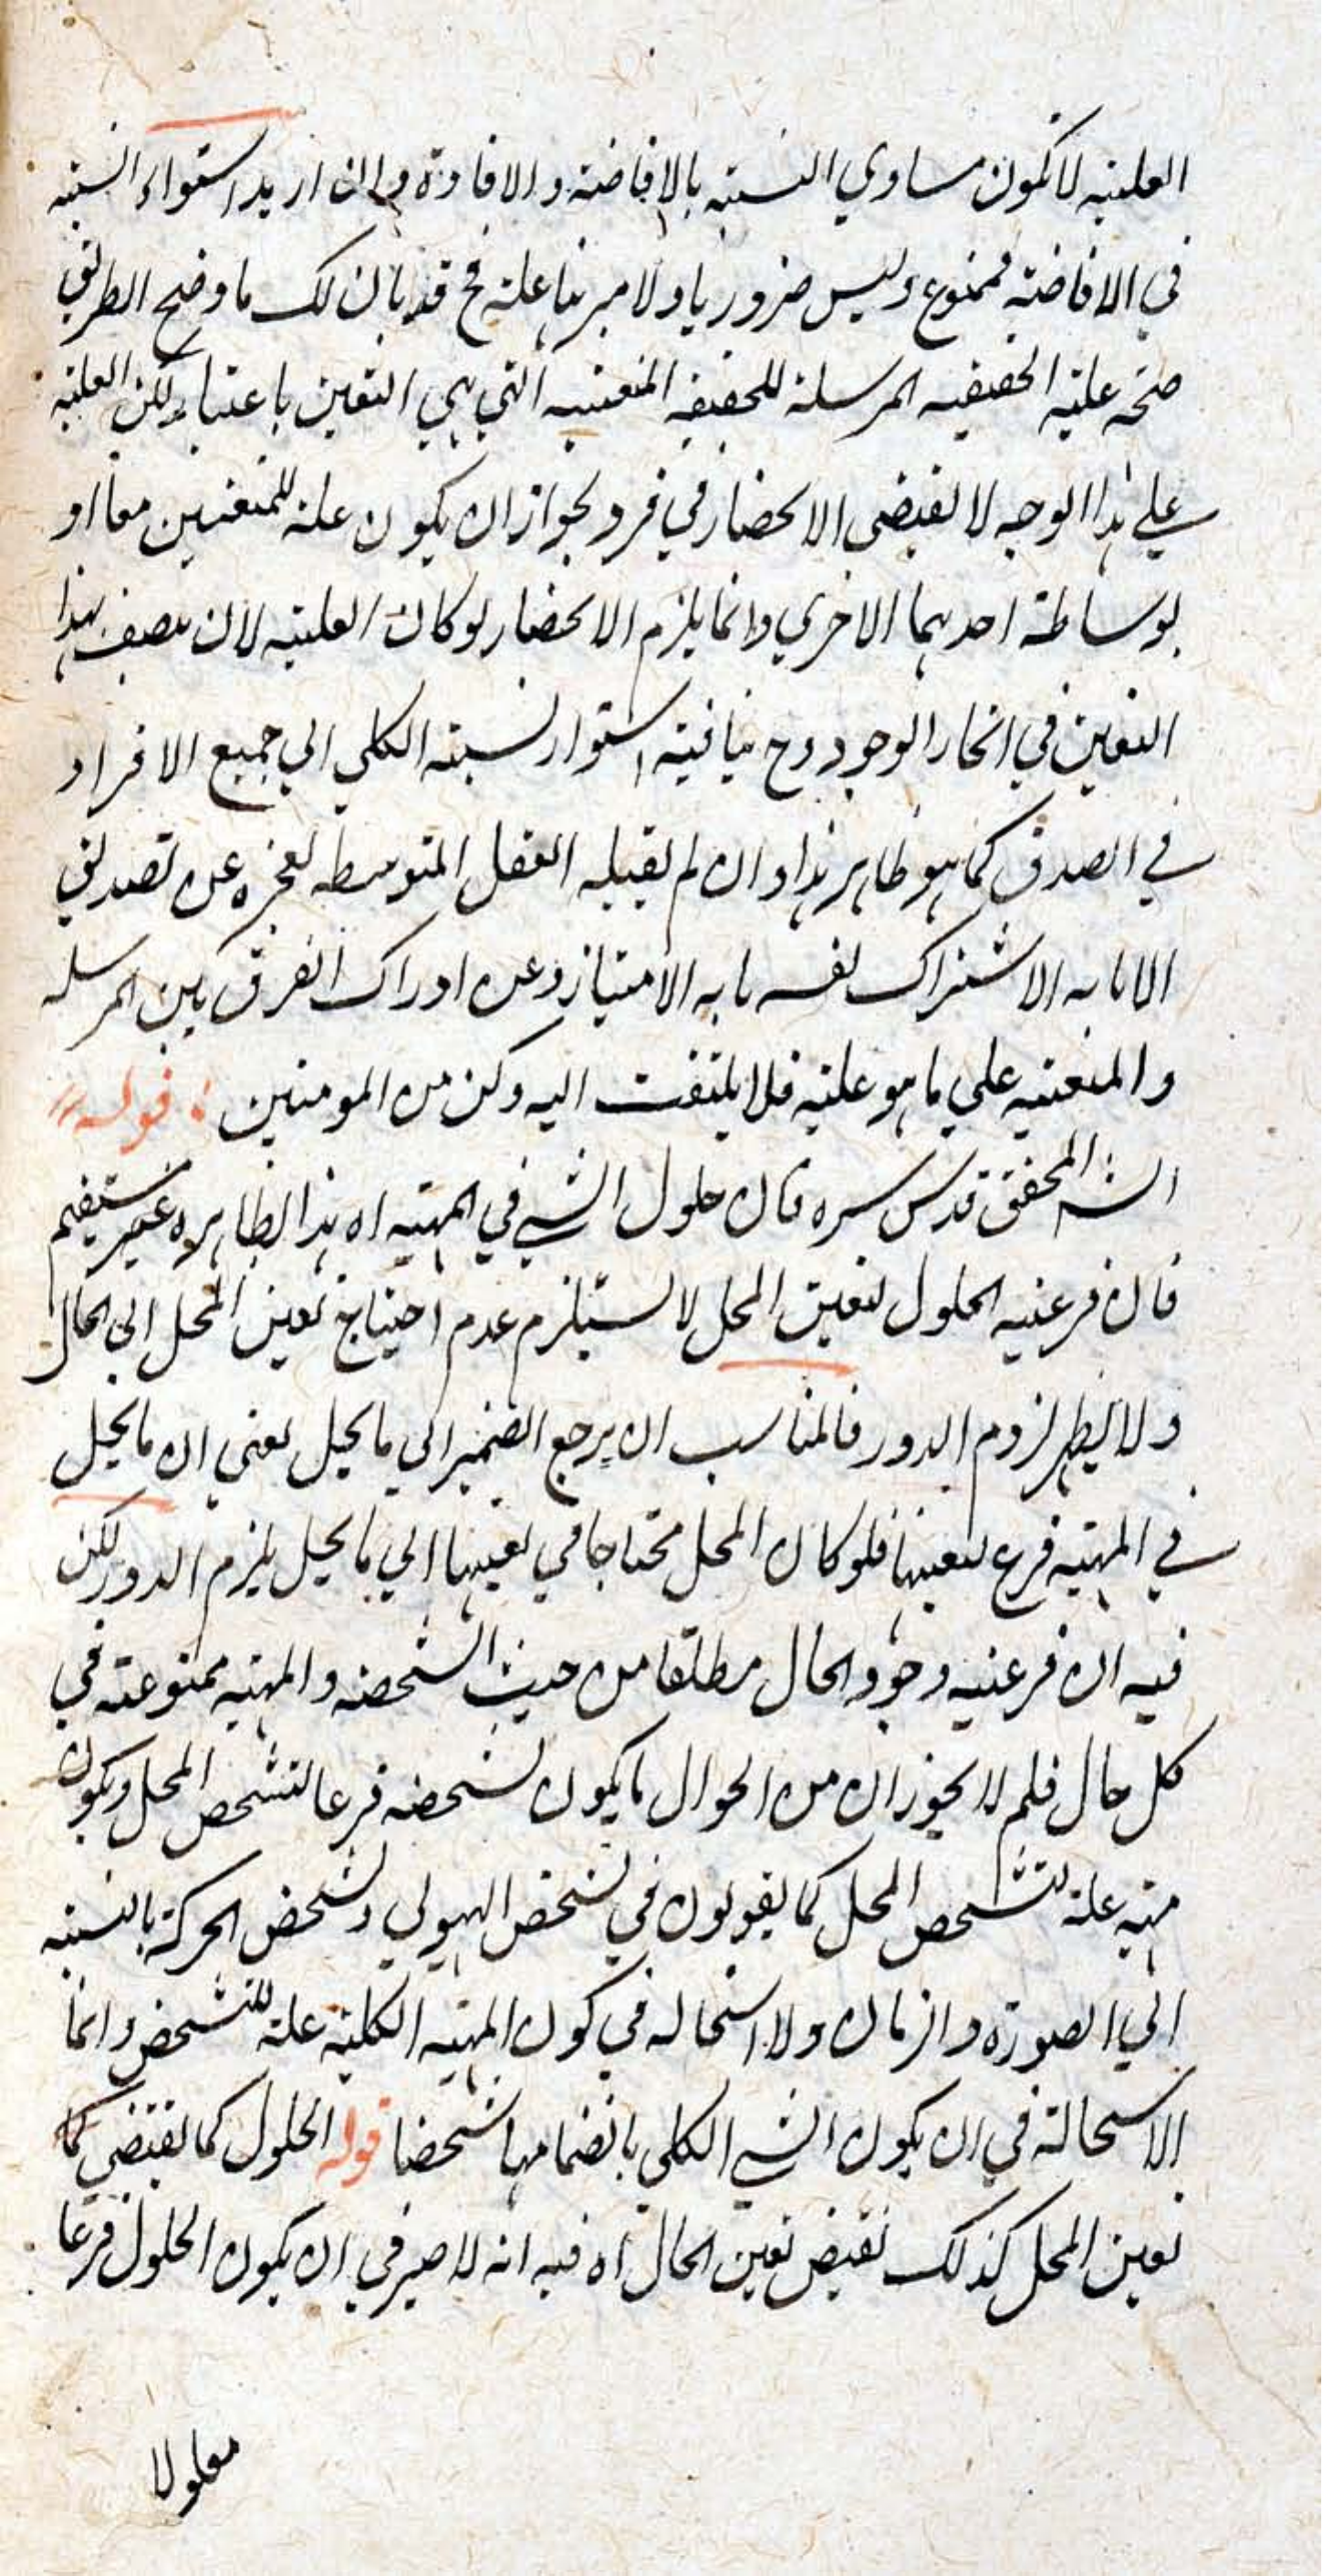 العلية لا تكون مساوي النسبة بالافاضة والافادة وان اريد استواء النسبة
في الافاضة فممنوع وليس ضروريا ولا مبرهنا عليه فح قد بان لك ما وضح الطريق
صحة علية الحقيقة المرسلة للحقيقة المتعينة التي هي التعين باعتبار لكن العلية
على هذا الوجه لا تقتضي الانحصار في فرد لجواز ان يكون علة للمتعنين معا او
بوساطة احدهما الاخرى وانما يلزم الانحصار لو كان العلية لان يتصف بهذا
التعين في انحاء الوجود وح ينافيه استواء نسبة الكلي الي جميع الافراد
في الصدق كما هو ظاهر هذا وان لم يقبله العقل المتوسطه لعجزه عن تصديق
ان ما به الاشتراك نفس ما به الامتياز وعن ادراك الفرق بين المرسلة
والمتعينة على ما هو عليه فلا يلتفت اليه وكن من المومنين قوله
الش المحقق قدس سره فان حلول الشي في المهية اه هذا الظاهره غير مستقيم
فان فرعية الحلول لتعين المحل لا يستلزم عدم احتياج تعين المحل الى الحال
ولا يظهر لزوم الدور فالمناسب ان يرجع الضمير الى ما يحل يعني ان ما يحل
في المهية فرع لتعينها فلو كان المحل محتاجا في تعينها الي ما يحل يلزم الدور لكن
فيه ان فرعية وجود الحال مطلقا من حيث التشخص والمهية ممنوعة في
كل حال فلم لا يجوز ان من الحوال ما يكون تشخصه فرعا لتشخص المحل ويكون
مهيته علة لتشخص المحل كما يقولون في تشخص الهيولي وتشخص الحركة بالنسبة
الي الصورة والزمان ولا استحالة في كون المهية الكلية علة للتشخص وانما
الاستحالة في ان يكون الشي الكلي بانضمامها شخصا قوله الحلول كما يقتضي كما
تعين المحل كذلك تقتضي تعين الحال اه فيه انه لا ضير في ان يكون الحلول فرعا
معلولا